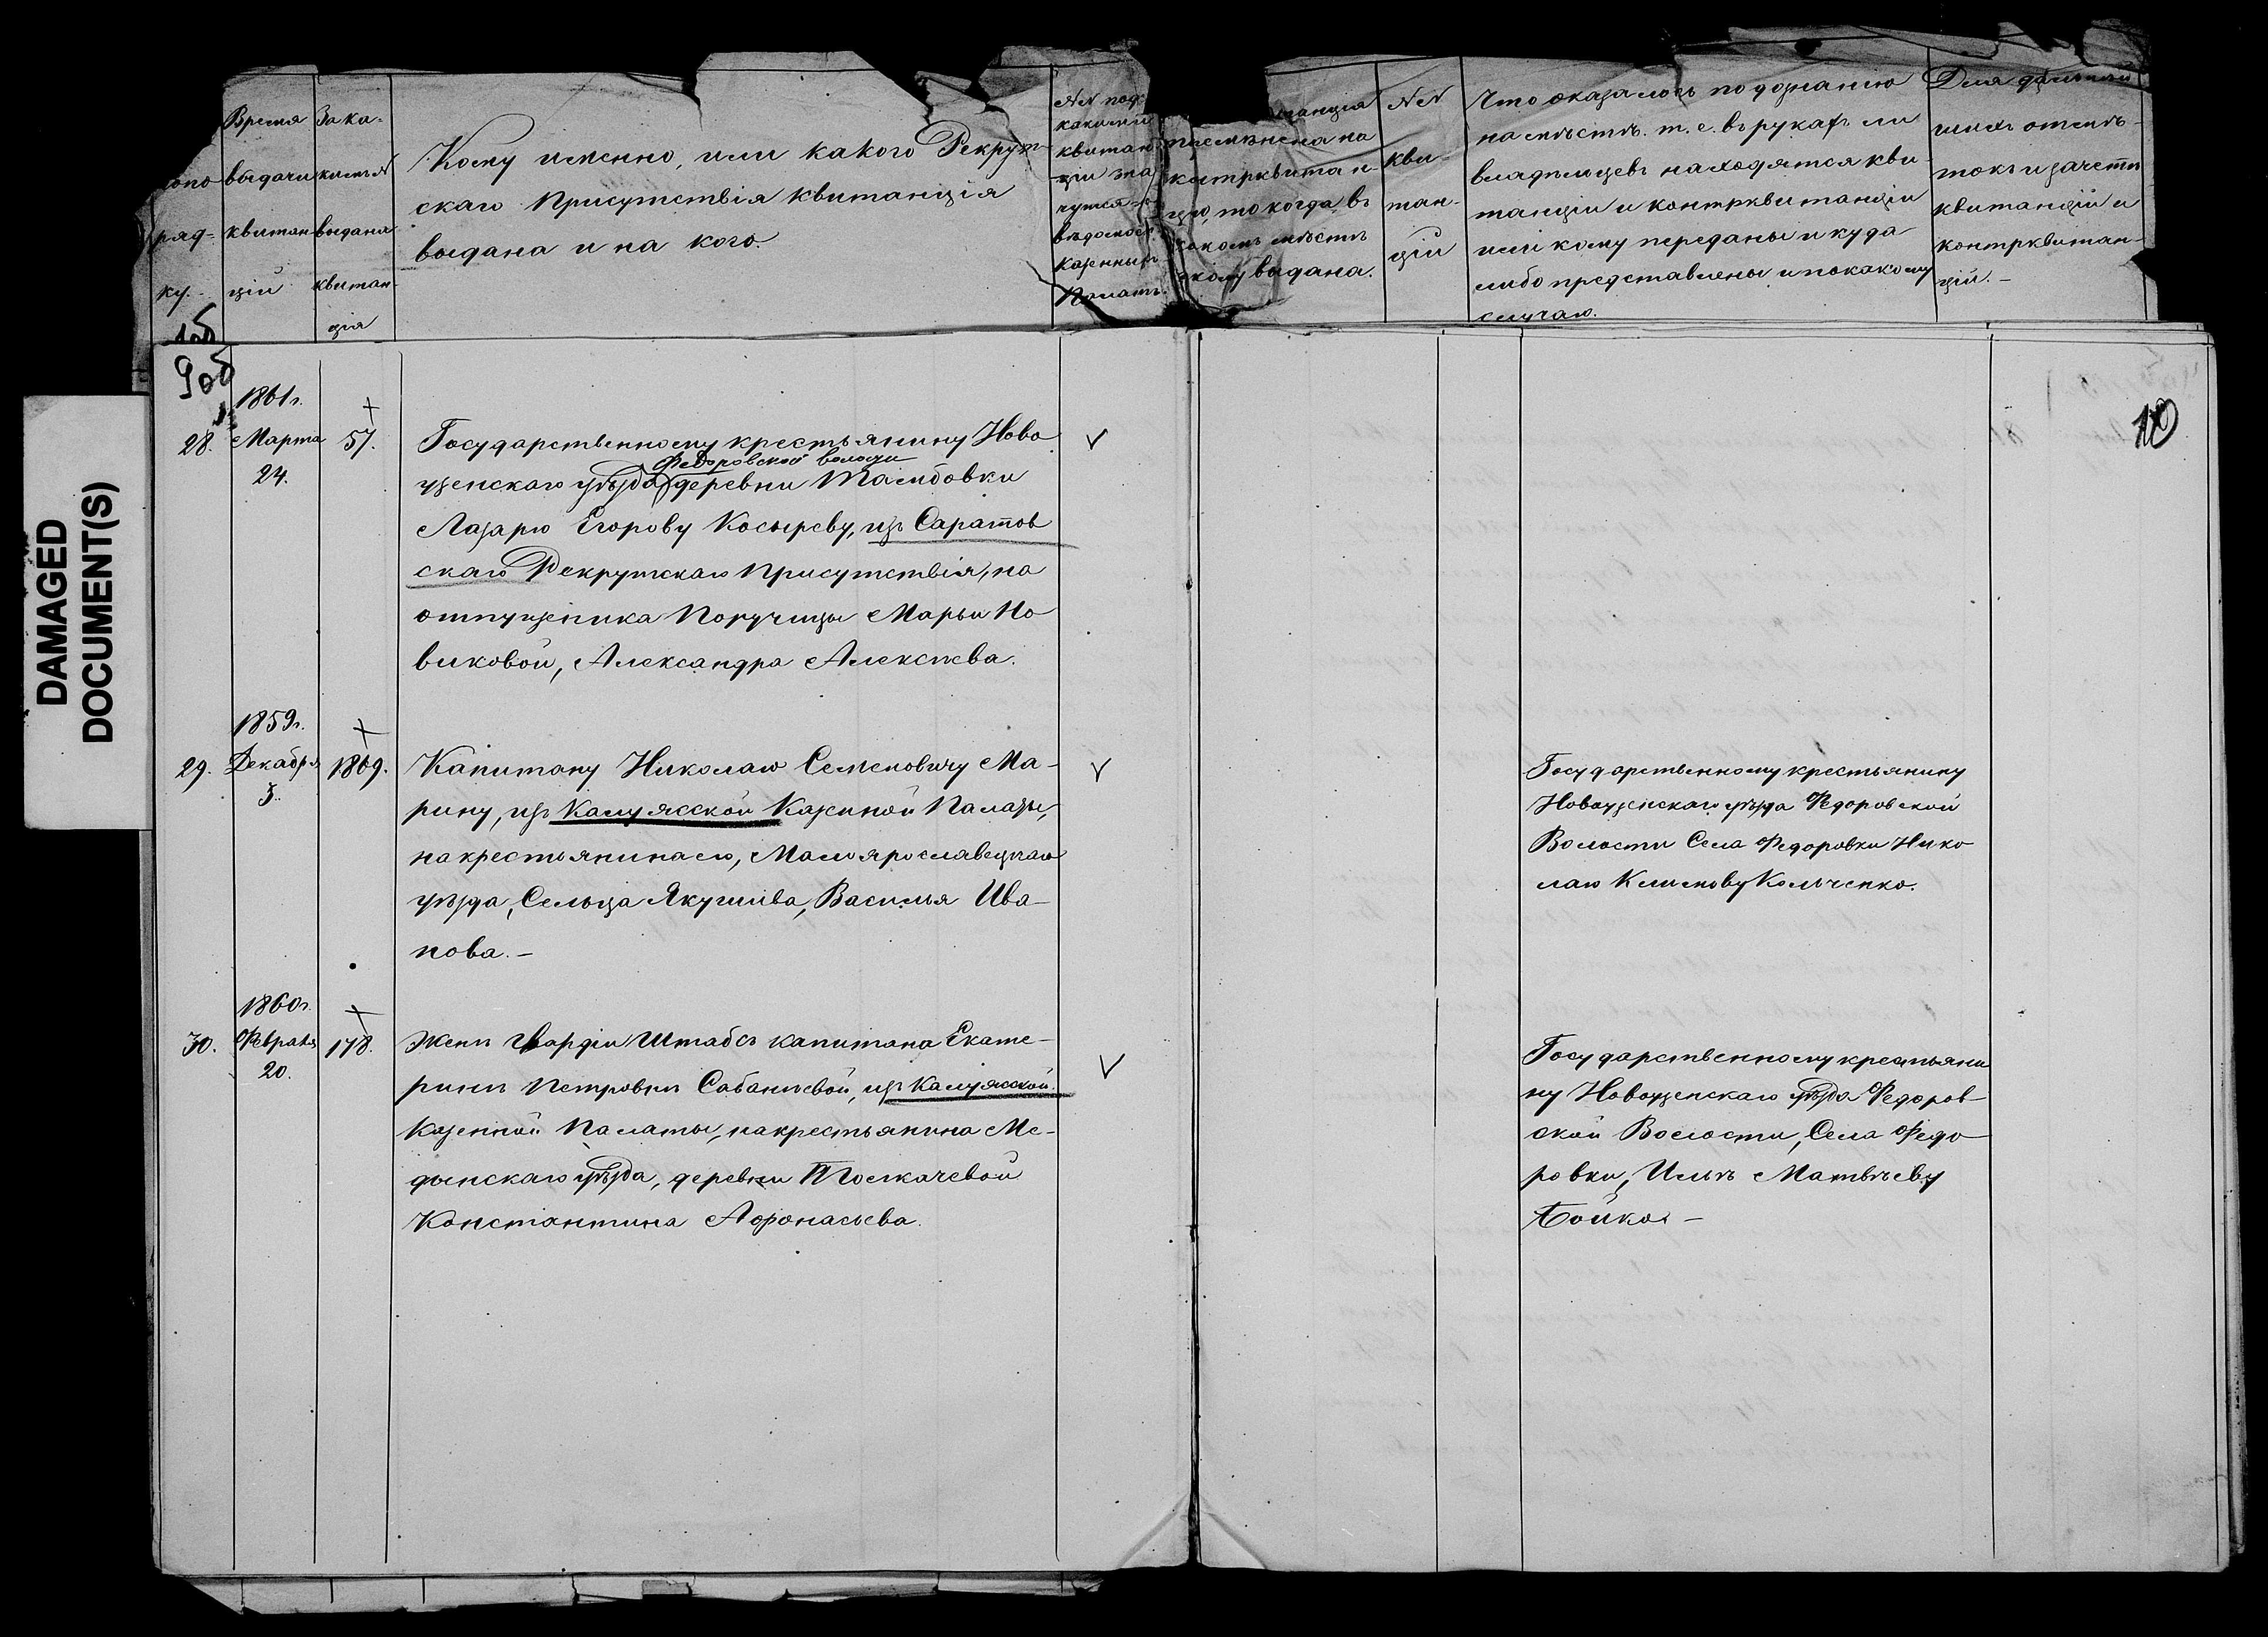 DAMAGED
DOCUMENT(S)
ряд-
ку.
Время
выдачи
квитан
цій
За ка-
кимъ №
выдана
квитан-
ція
Кому именно, или какого Рекрут-
скаго Присутствія квитанція
выдана и на кого.
№№ под
какими
квитан
ціи зна
чутся
Казенныхъ
Палатъ.
танція
на
контрквитан-
цію, то когда въ
какомъ мѣстѣ
и кому выдана.
№№
кви-
тан-
цій
Что оказалось по дознанію
на мѣстѣ. т. е. въ рукахъ ли
владѣльцевъ находятся кви-
танціи и контрквитанціи
или кому переданы и куда
либо представлены и по какому
случаю.
Для дальнѣй
шихъ отмѣ-
токъ и зачетѣ
квитанцій и
контрквитан-
цій. -
9 об
10
28.
1861 г.
Марта
24.
+
57.
Государственному крестьянину Ново
Федоровской волости
узенскаго уѣзда деревни Тамбовки
Лазарю Егорову Косыреву, изъ Саратов
скаго Рекрутскаго Присутствія, на
отпущеника Поручицы Марьи Но
виковой, Александра Алексѣева.
V
29.
1859 г.
Декабря
5.
+
1869.
Капитану Николаю Семеновичу Ма-
рину, изъ Калужской Казенной Палаты,
на крестьянина его, Малоярославецкаго
уѣзда, Сельца Якушева, Василья Ива-
нова. -
V
Государственному крестьянину
Новоузенскаго уѣзда Федоровской
Волости Села Федоровки Нико
лаю Климову Кольченко.
30.
1860 г.
Февраля
20.
+
178.
Женѣ Гвардіи Штабсъ капитана Екате-
ринѣ Петровнѣ Сабанѣевой, изъ Калужской
Казенной Палаты, на крестьянина Ме-
дынскаго уѣзда, деревни Толкачевой
Константина Афонасьева.
V
Государственному крестьяни
ну Новоузенскаго уѣзда Федоров-
ской Волости, Села Федо-
ровки, Ильѣ Матвѣеву
Бойко. -